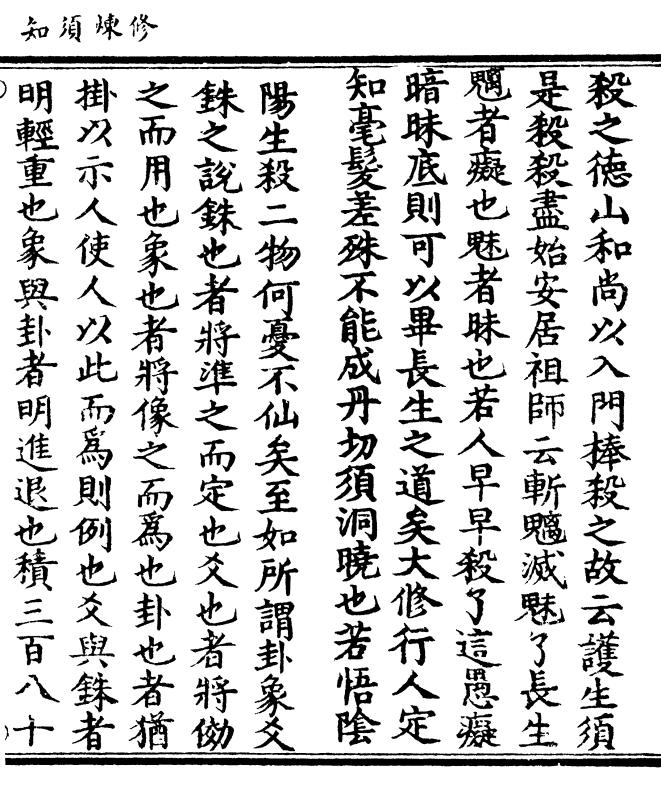 修煉須知
殺之德山和尚以入門棒殺之故云護生須
是殺殺盡始安居祖師云斬魑滅魅了長生
魑者癡也魅者昧也若人早早殺了這愚癡
暗昧底則可以畢長生之道矣大修行人定
知毫髮差殊不能成丹切須洞曉也若悟陰
陽生殺二物何憂不仙矣至如所謂卦象爻
銖之說銖也者將準之而定也爻也者將傚
之而用也象也者將像之而爲也卦也者猶
掛以示人使人以此而爲則例也爻與銖者
明輕重也象與卦者明進退也積三百八十